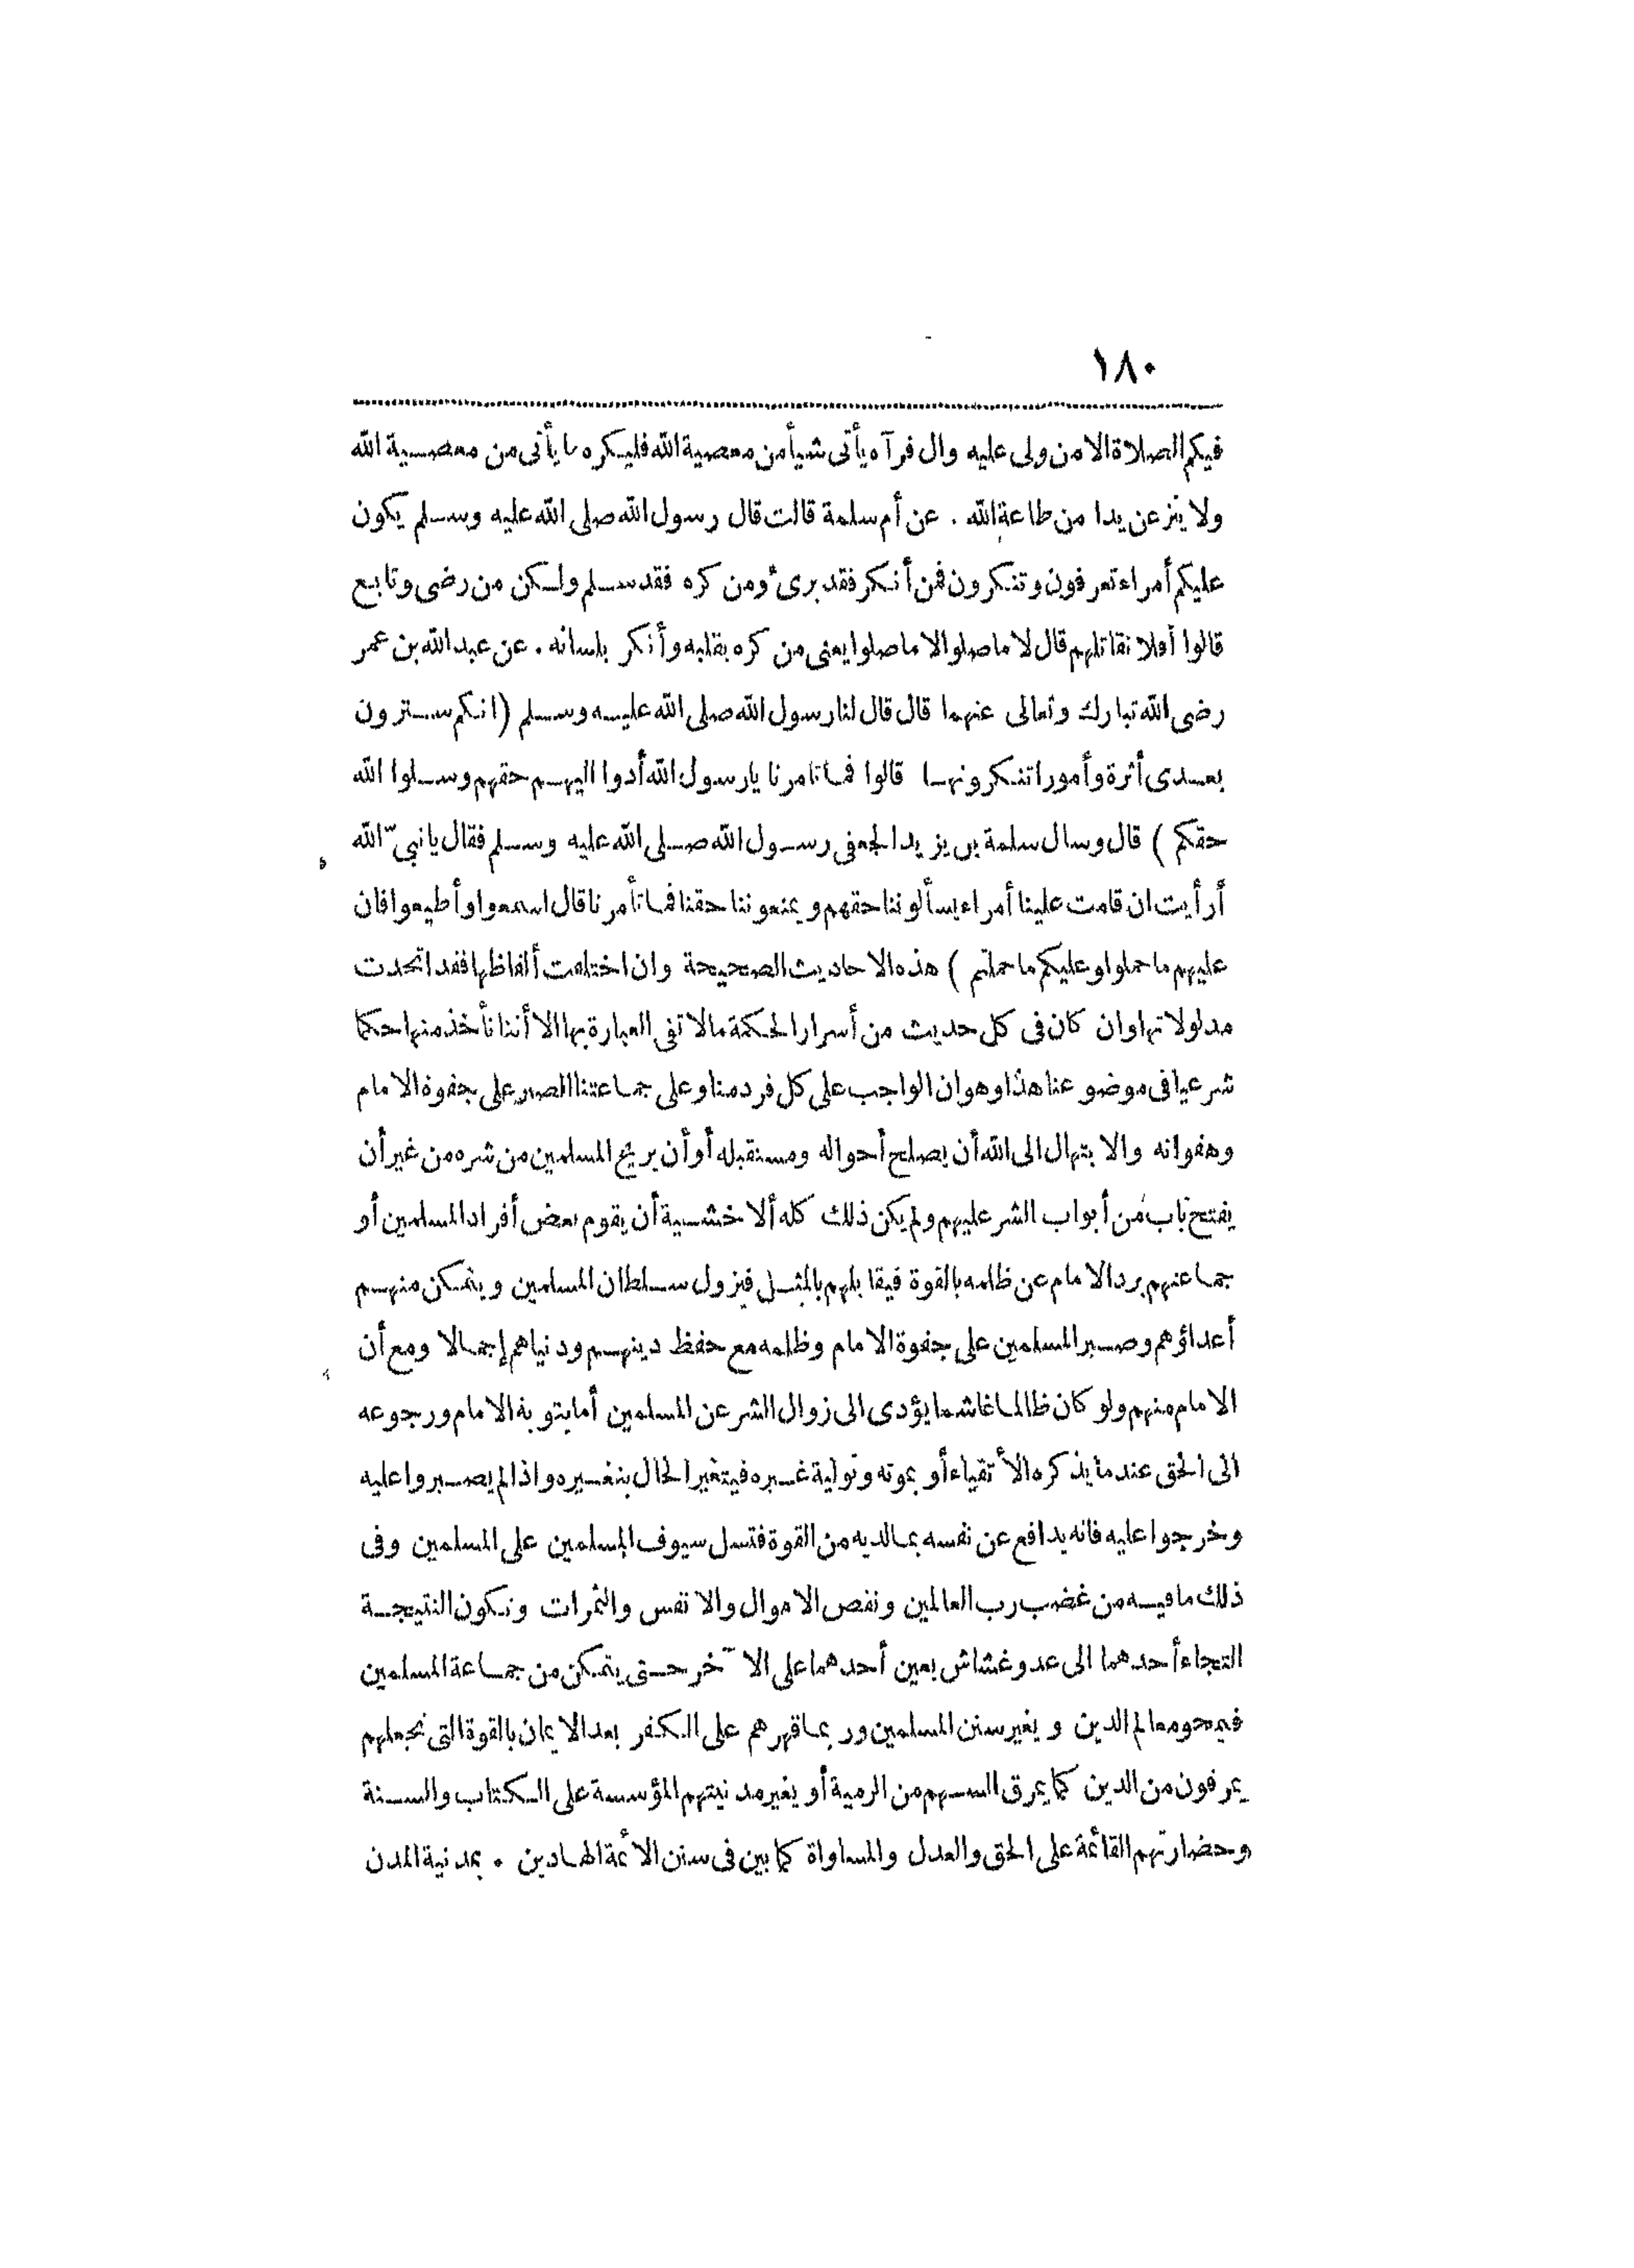 ١٨٠
فيكم الصلاة الا من ولى عليه وال فرآه يأتى شيأ من معصية الله فليكره ما يأتى من معصية الله
ولا ينزعن يدا من طاعة الله . عن أم سلمة قالت قال رسول الله صلى الله عليه وسلم يكون
عليكم أمراء تعرفون وتنكرون فمن أنكر فقد برئ ومن كره فقد سلم ولكن من رضى وتابع
قالوا أفلا نقاتلهم قال لا ما صلوا لا ما صلوا يعنى من كره بقلبه وأنكر بلسانه . عن عبد الله بن عمر
رضى الله تبارك وتعالى عنهما قال قال لنا رسول الله صلى الله عليه وسلم (انكم سترون
بعدى أثرة وأمورا تنكرونها قالوا فما تامرنا يا رسول الله أدوا اليهم حقهم وسلوا الله
حقكم ) قال وسال سلمة بن يزيد الجعفى رسول الله صلى الله عليه وسلم فقال يا نبىّ الله
أرأيت ان قامت علينا أمراء يسألوننا حقهم ويمنعوننا حقنا فما تأمرنا قال اسمعوا وأطيعوا فان
عليهم ما حملوا وعليكم ما حملتم ) هذه الاحاديث الصحيحة وان اختلفت ألفاظها فقد اتحدت
مدلولاتها وان كان فى كل حديث من أسرار الحكمة مالا تفى العبارة بها الا أننا نأخذ منها حكما
شرعيا فى موضوعنا هذا وهو ان الواجب على كل فرد منا وعلى جماعتنا الصبر على جفوة الامام
وهفواته والابتهال الى الله أن يصلح أحواله ومستقبله أو أن يريح المسلمين من شره من غير أن
يفتح باب من أبواب الشر عليهم ولم يكن ذلك كله ألا خشية أن يقوم بعض أفراد المسلمين أو
جماعتهم برد الامام عن ظلمه بالقوة فيقابلهم بالمثل فيزول سلطان المسلمين ويتمكن منهم
أعداؤهم وصبر المسلمين على جفوة الامام وظلمه مع حفظ دينهم ودنياهم إجمالا ومع أن
الامام منهم ولو كان ظالما غاشما يؤدى الى زوال الشر عن المسلمين أما بتوبة الامام ورجوعه
الى الحق عندما يذكره الأتقياء أو بموته وتولية غيره فيتغير الحال بتغييره واذا لم يصبروا عليه
وخرجوا عليه فانه يدافع عن نفسه بما لديه من القوة فتسل سيوف المسلمين على المسلمين وفى
ذلك ما فيه من غضب رب العالمين ونقص الاموال والانفس والثمرات وتكون النتيجة
التجاء أحدهما الى عدو غشاش بعين أحدهما على الآخر حتى يتمكن من جماعة المسلمين
فيمحو معالم الدين ويغير سنن المسلمين وربما قهرهم على الكفر بعد الايمان بالقوة التى تجعلهم
يمرقون من الدين كما يمرق السهم من الرمية أو يغير مدنيتهم المؤسسة على الكتاب والسنة
وحضارتهم القائمة على الحق والعدل والمساواة كما بين فى سنن الائمة الهادين . بمدنية المدن